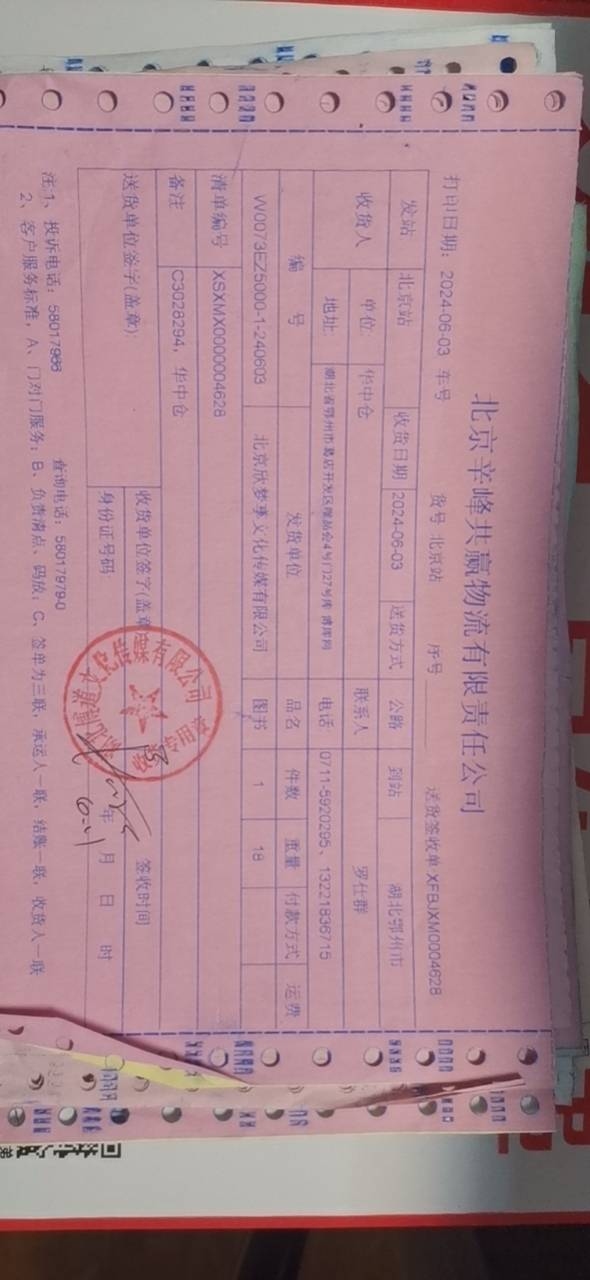 北京羊峰共赢物流有限责任公司
打印日期: 2024-06-03 车号 货号 北京站 序号 送货签收单 XFBJXM0004628
发站 北京站 收货日期 2024-06-03 送货方式 公路 到站 湖北鄂州市
收货人 单位: 华中仓 联系人 罗仕群
地址: 湖北省鄂州市葛店开发区唯品会4号门27号库 电话 0711-5920295、13221836715
编 号 发货单位 品名 件数 重量 付款方式 运费
W0073EZ5000-1-240603 北京欣梦享文化传媒有限公司 图书 1 18
清单编号 XSXMX0000004628
备注 C3028294, 华中仓
送货单位签字(盖章): 收货单位签字(盖章 签收时间
身份证号码 年 月 日 时
文化传媒有限公司
专用章
注:1、投诉电话: 58017988 查询电话: 58017979-0
2、客户服务标准, A、门对门服务; B、负责清点、码放; C、签单为三联, 承运人一联, 结账一联, 收货人一联